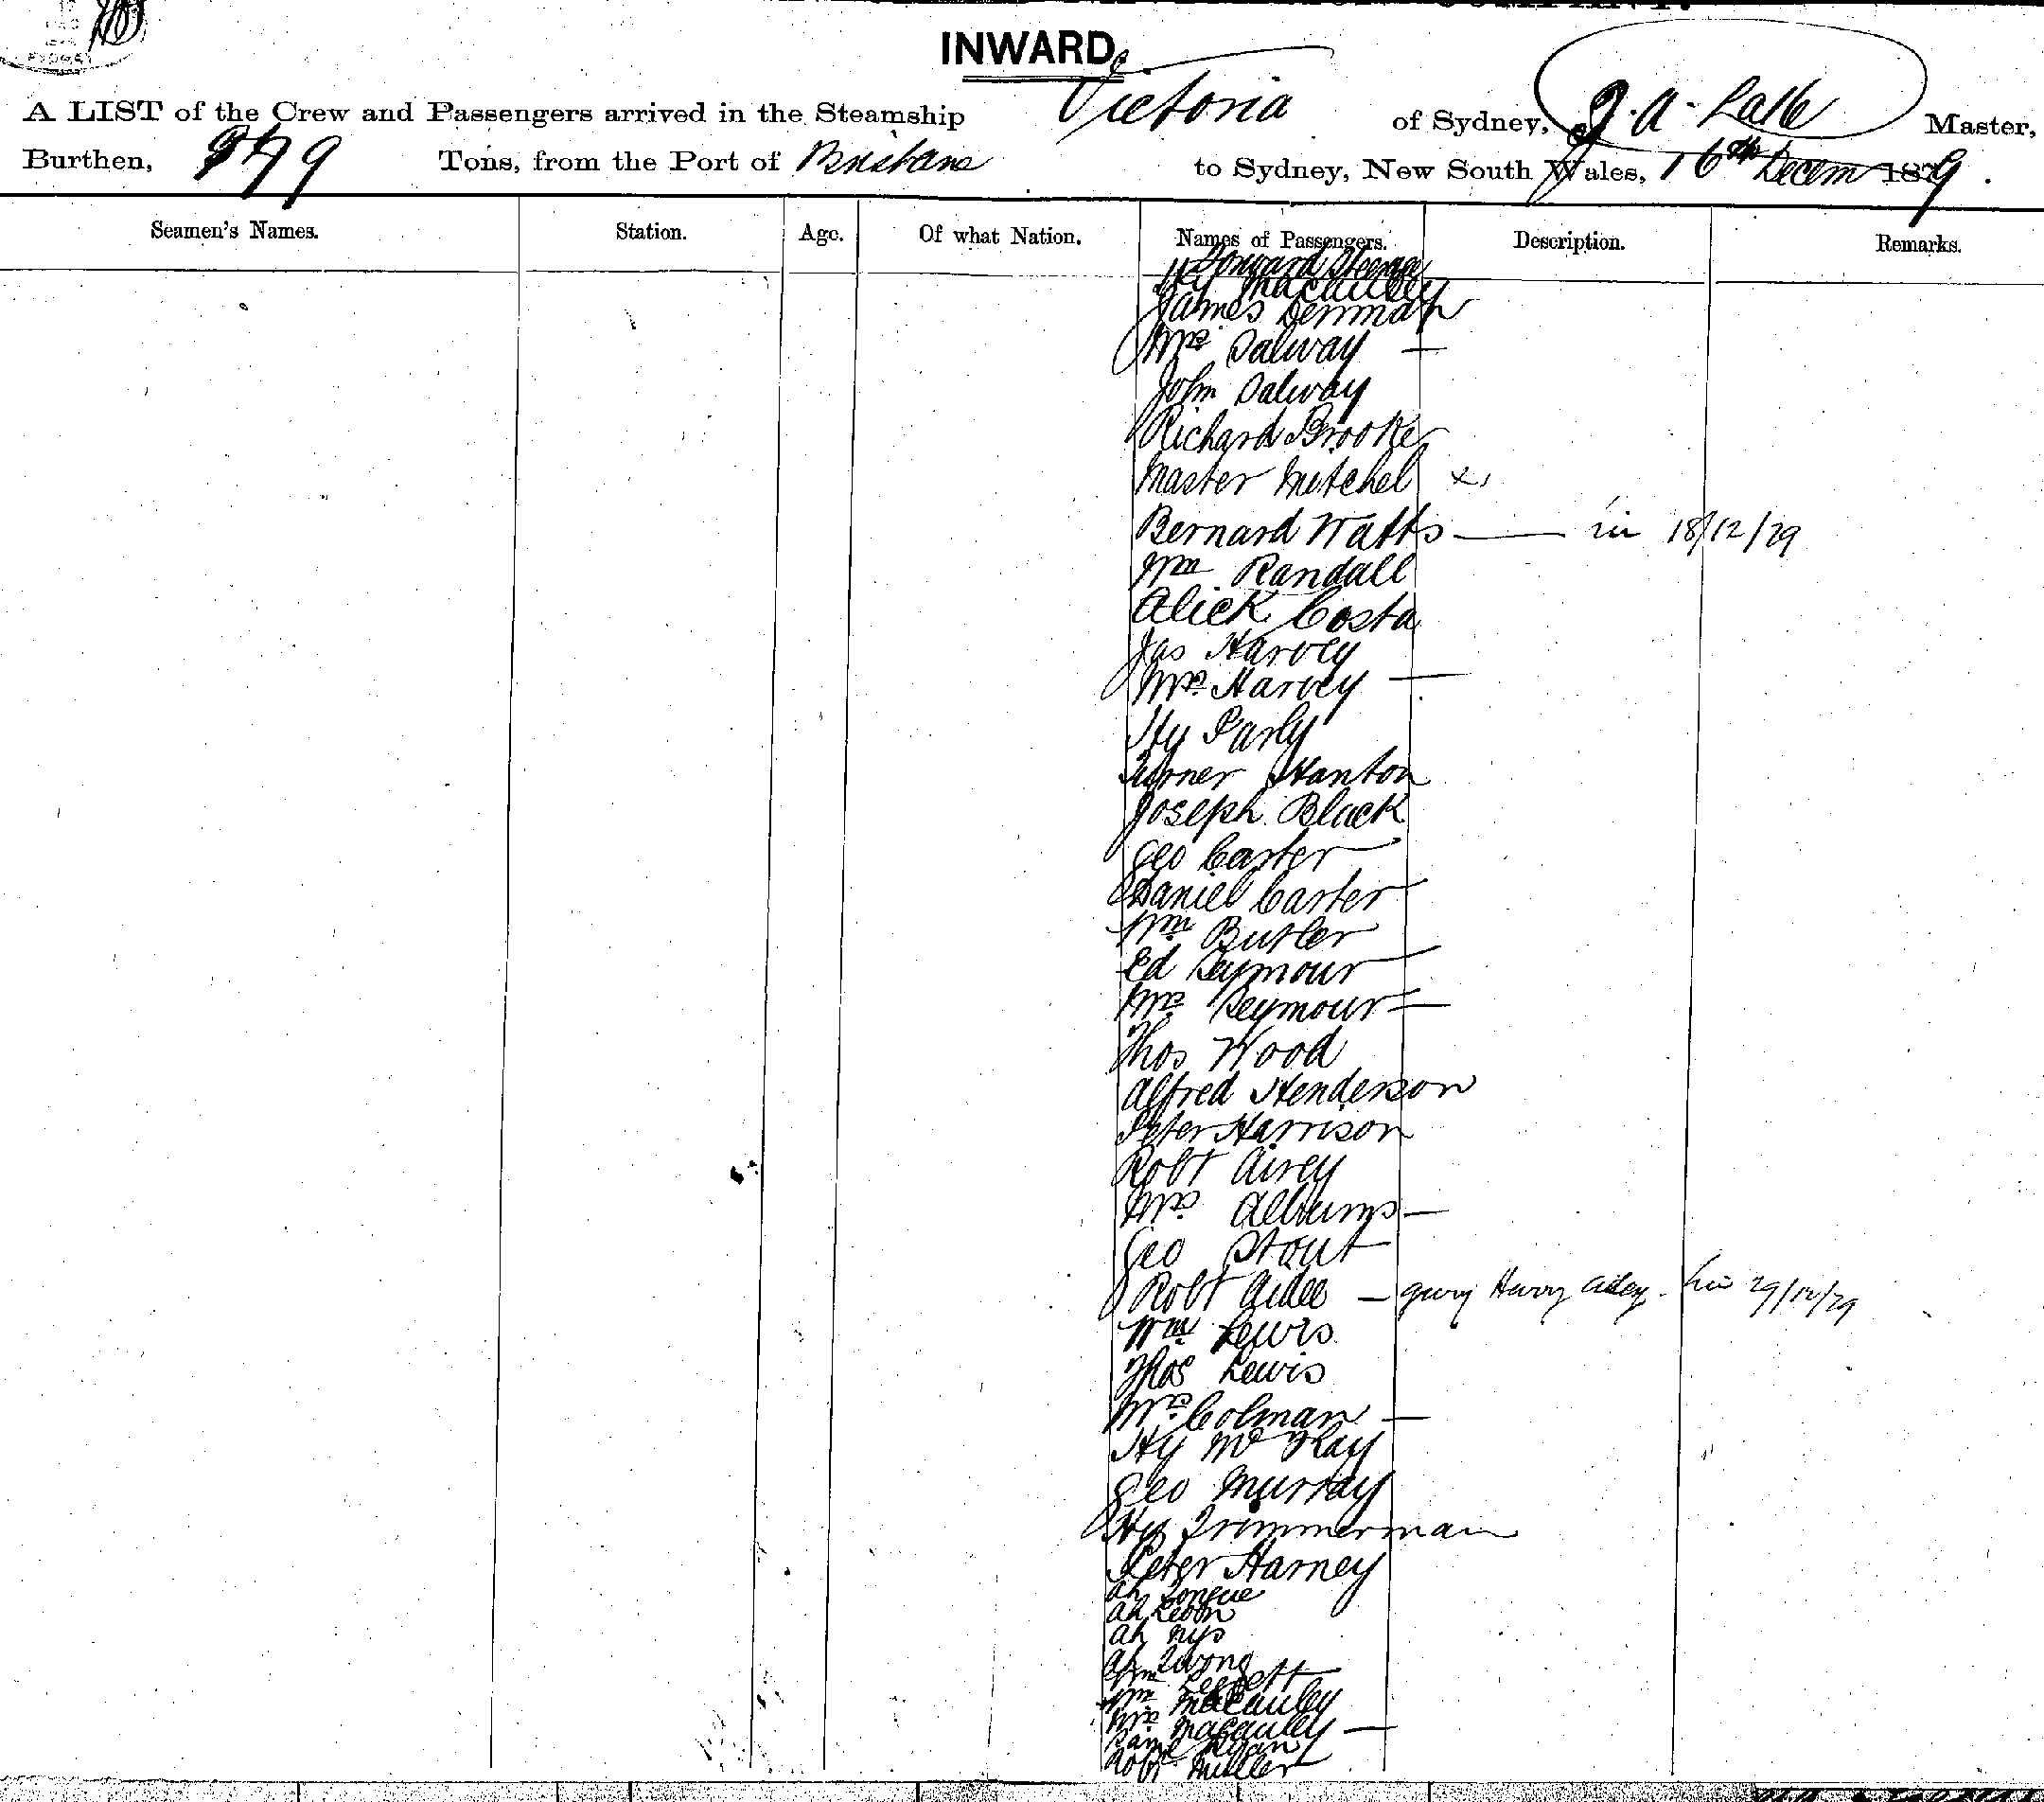 INWARD.
A LIST of the Crew and Passengers arrived in the Steamship Victoria of Sydney, J. A. Lake Master,
Burthen, Tons, from the Port of Brisbane to Sydney, New South Wales, 16th Decem 1879.
Seamen's Names. Station. Age. Of what Nation. Names of Passengers. Description. Remarks.
Forward Steerage
Hy Macauley
James Denman
Mrs Salway —
John Salway
Richard Brooke
Master Mitchel x
Bernard Watts — in 18/12/79
Wm Randall
Alick Costa
Jas Harvey
Mrs Harvey —
Hy Parly
Turner Stanton
Joseph Black
Geo Carter
Daniel Carter
Wm Butler
Ed Seymour
Mrs Seymour —
Thos Wood
Alfred Henderson
Peter Harrison
Robt Airey
Mrs —
Geo Stout
Robt —
Wm Lewis
Thos Lewis
Mrs Colman —
Hy McKay
Geo Murray
Hy Trimmerman
Peter Harney
Ah Tongue
Ah
Ah
Ah
Wm Leggett
Wm Macauley
Mrs Macauley —
Saml Ryan
Robt Miller